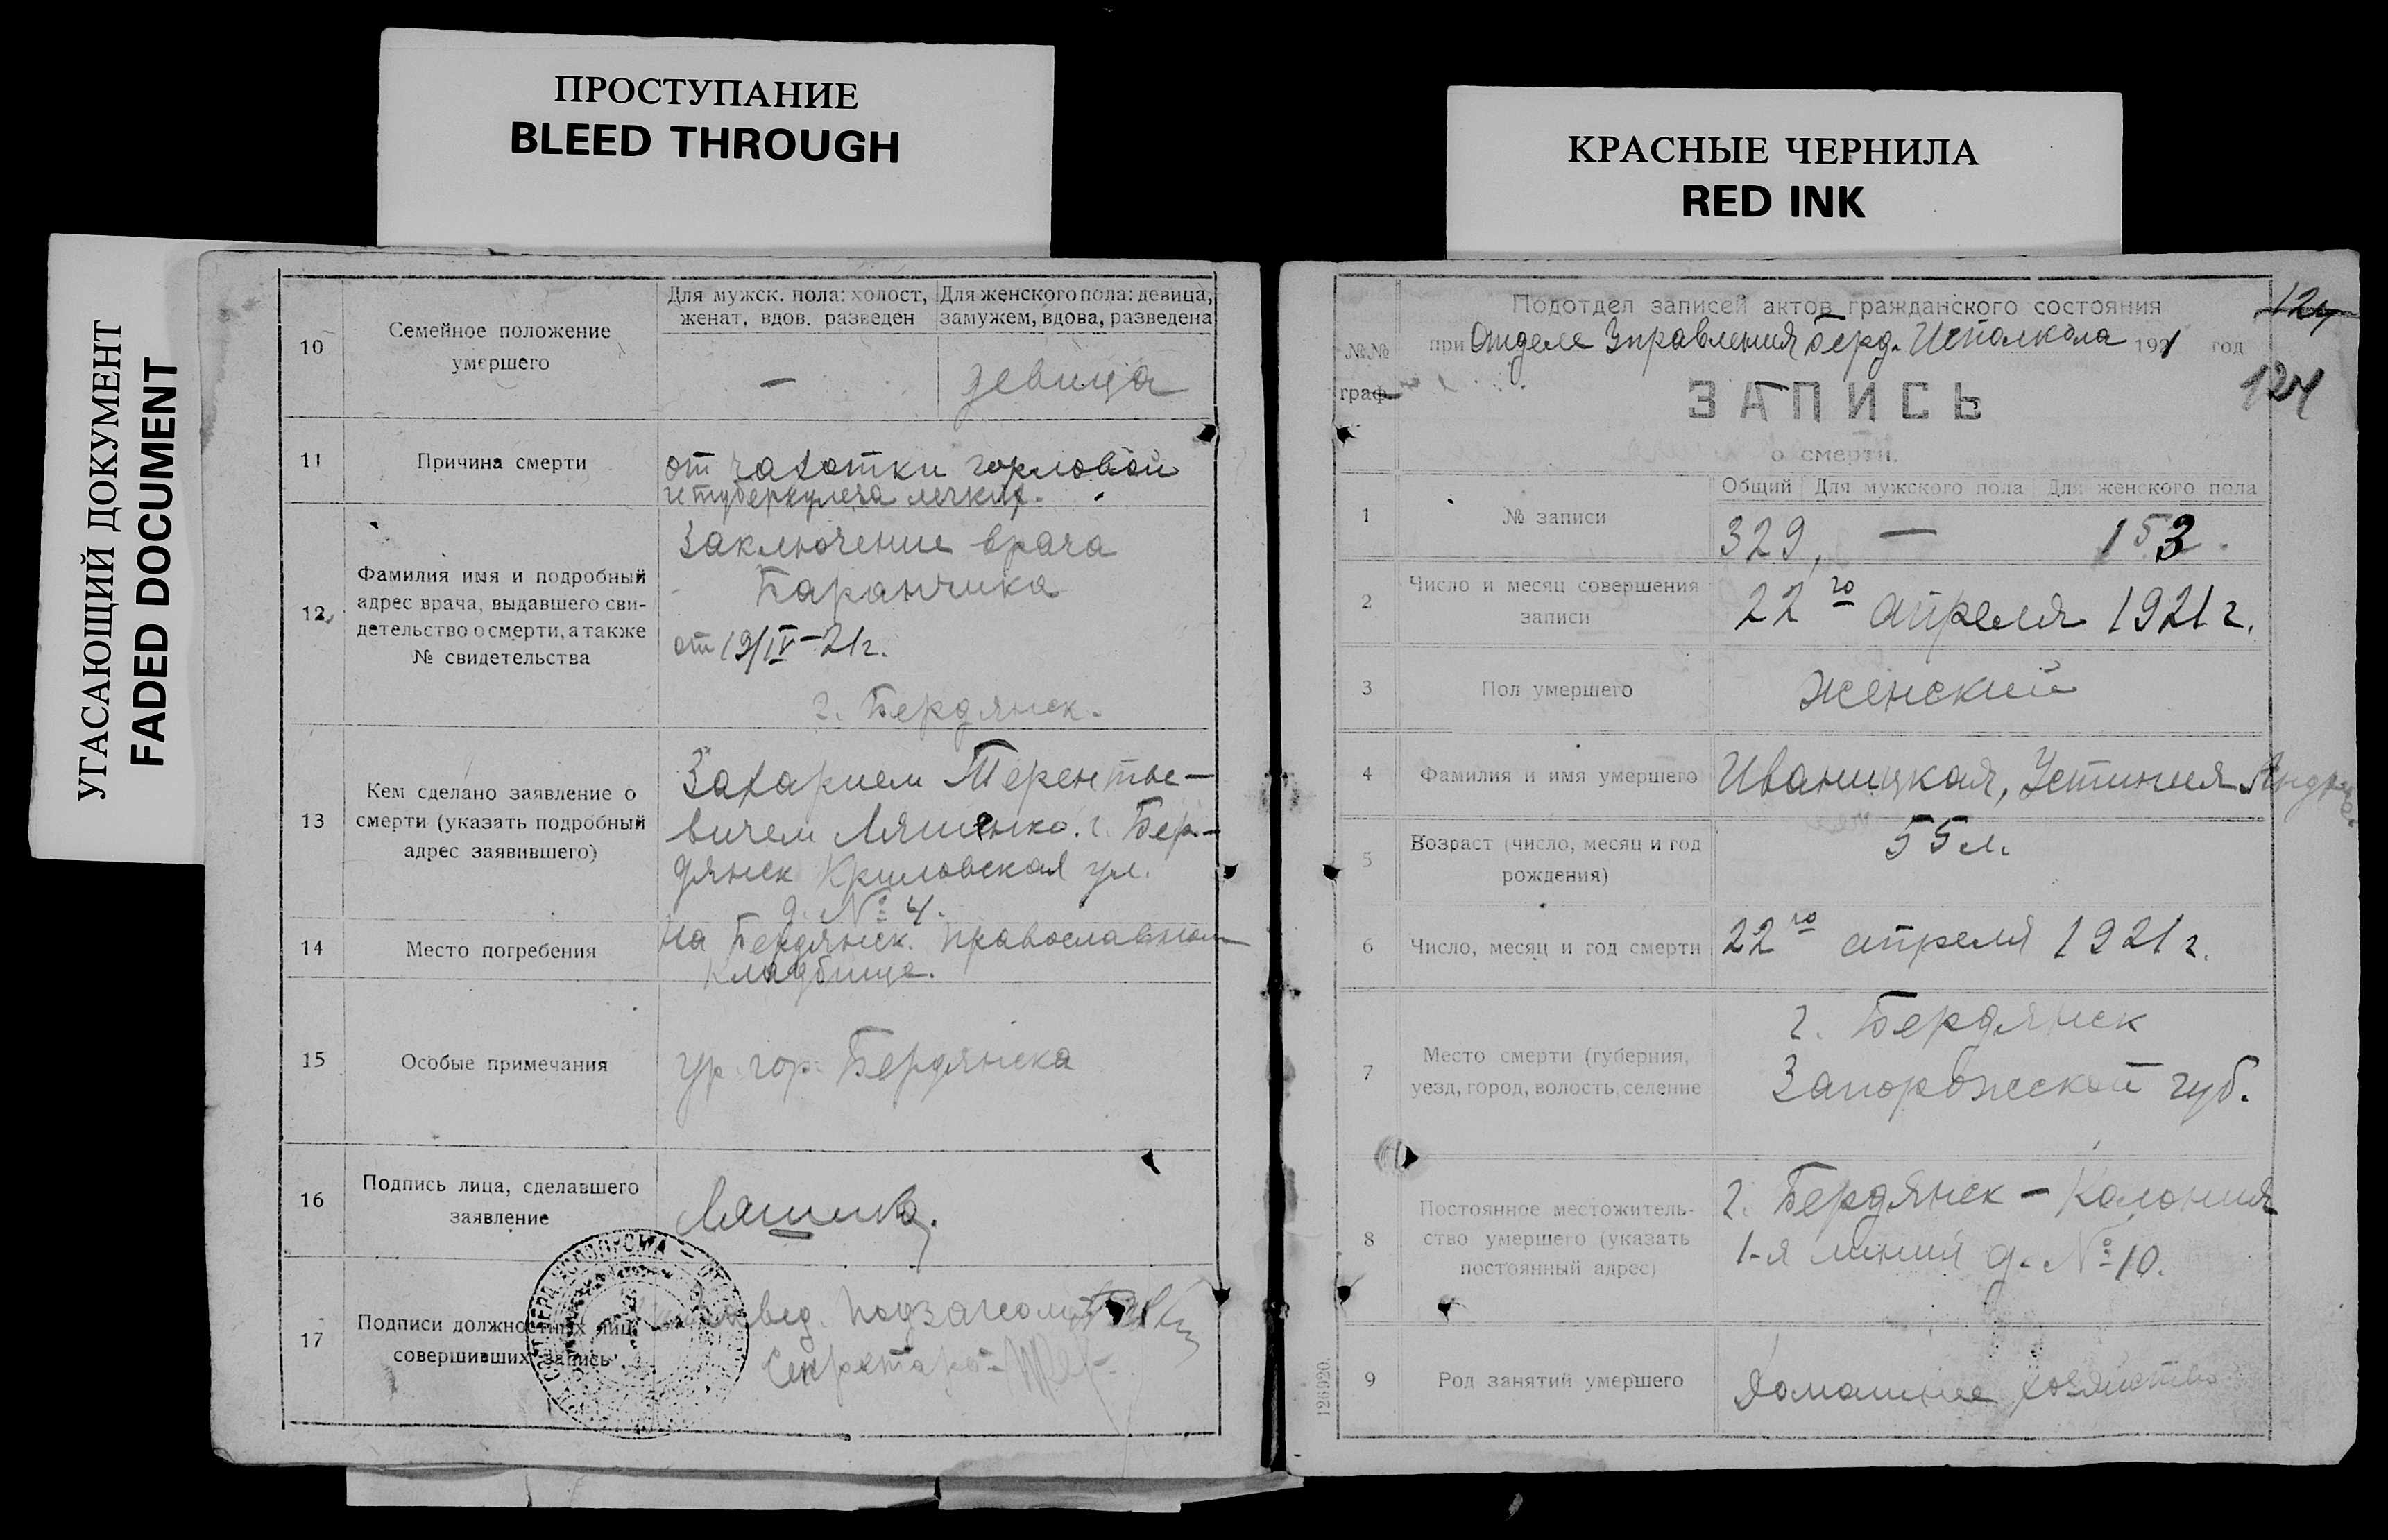 ПРОСТУПАНИЕ
BLEED THROUGH
УГАСАЮЩИЙ ДОКУМЕНТ
FADED DOCUMENT
КРАСНЫЕ ЧЕРНИЛА
RED INK
10
Семейное положение
умершего
Для мужск. пола: холост,
женат, вдов. разведен
Для женского пола: девица,
замужем, вдова, разведена
—
девица
11
Причина смерти
от чахотки горловой
и туберкулеза легких.
12
Фамилия имя и подробный
адрес врача, выдавшего сви-
детельство о смерти, а также
№ свидетельства
Заключение врача
Баранчика
от 19/IV-21г.
г. Бердянск.
13
Кем сделано заявление о
смерти (указать подробный
адрес заявившего)
Захарием Терентье-
вичем Ляшенко. г. Бер-
дянск Криловская ул.
д. № 4.
14
Место погребения
на Бердянск. православном
кладбище.
15
Особые примечания
гр. гор. Бердянска
16
Подпись лица, сделавшего
заявление
17
Подписи должностных лиц
совершивших запись
Завед. Подзагсом
Секретарь
124
124
Подотдел записей актов гражданского состояния
№№
граф.
при Отделе Управления Берд. Исполкома 1921 год
ЗАПИСЬ
о смерти.
Общий Для мужского пола Для женского пола
1
№ записи
329, — 153.
2
Число и месяц совершения
записи
22го апреля 1921 г.
3
Пол умершего
женский
4
Фамилия и имя умершего
Иваницкая, Устиния
5
Возраст (число, месяц и год
рождения)
55 л.
6
Число, месяц и год смерти
22го апреля 1921 г.
7
Место смерти (губерния,
уезд, город, волость, селение
г. Бердянск
Запорожской губ.
8
Постоянное местожитель-
ство умершего (указать
постоянный адрес)
г. Бердянск - Колония
1-я линия д. № 10.
9
Род занятий умершего
Домашнее хозяйство
126920.